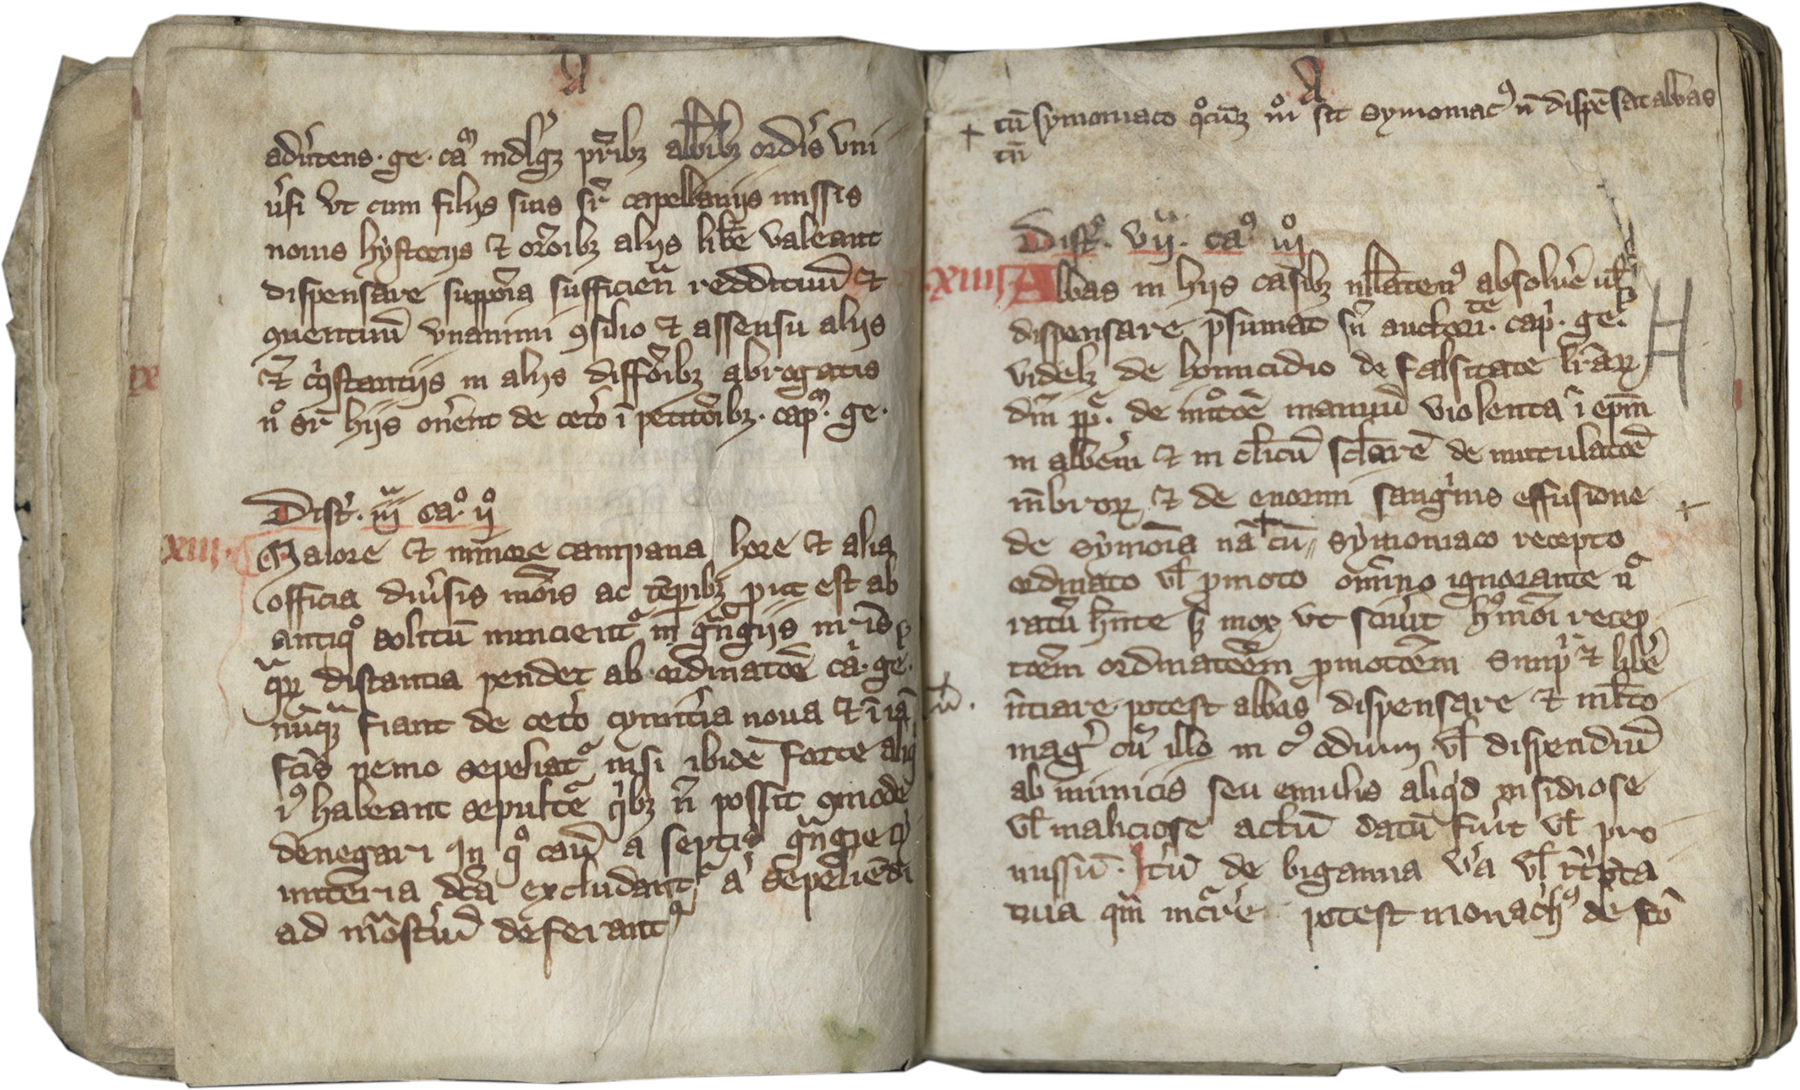 A
advertens · ge · ca᷒ indulget pr̄ibꝫ abb̄ibꝫ ordīs vni
v̉si vt cum filijs suis sr̄ capellanijs missis
nouis hẏstorijs ⁊ or̄oibꝫ alijs lib̄e valeant
dispensare supp̄oīa sufficien̄ reddituū ⁊
ꝯuentuū vnanimi ꝯsilio ⁊ assensu alijs
⁊ ꝯ̉stantijs in alijs diffōribꝫ abrogatis
nͦ sr̄ hijs on̉ent de cet̉o ī petitōibꝫ · cap᷒ · ge ·
Dist̉ · iijᵃ caͦ · ijͦ
xiii · Maiore ⁊ minore campana hore ⁊ alia
officia diủsis mōis ac tēꝑibꝫ ꝓut est ab
antiqͦ solitū nuncient᷑ in gͣngijs nr̄is
qͣꝝ distantia pendet ab ordinatōē cả · ge ·
nūqͣꝫ fiant de cet̉o cymit̉ia noua ⁊ ī iā
fcīs nemo sepeliat᷑ nisi ibidē forte aliqͥ
iꝰ habeant sepultᷓe qͥbꝫ n̄ possit ꝯmode
denegari In qͦ casū a septis gͣngie
mit̉eria dc̄a excludant᷑ a̍ sepeliēdi
ad mōst̉iū deferant᷑
A
+ cū symoniaco qͦcūꝫ mͦ sit symoniacꝰ n̄ dispēsat abbas
tn̄
Dist̉ · vijᵃ · caͦ iijͦ
xiiij Abbas in hijs casibꝫ nullatenꝰ absolủe ul̄
dispensare p̄sumat sn̄ auctoriᵗᵉ · cap̉ · ge ·
videlꝫ de homicidio de falsitate lr̄aꝝ
dn̄i pp̄ · de in̉tōe manuū violenta ī ep̄m
in abb̄em ⁊ in cl̄icū sc̄larē de mutulatōē
mēbroꝝ ⁊ de enormi sangͥnis effusione
de sẏmoīa nā cū symoniaco recepto
ordinato vl̄ ꝓmoto omīno ignorante nͨ
ratū hn̄te sꝫ mox vt sciu̍it hꝰmōi recep
toēm ordinatōēm ꝓmotōēm sunpͬ ⁊ lib̉e
tū · n̄tiare potest abbas dispensare ⁊ ml̄to
mag̉ cū illo in cꝰ odium vl̄ dispendiū
ab inimicis seu emulis aliqͥd insidiose
vl̄ maliciose actū datū fu̍it vl̄ pro
missū · Itū de bigamia v̉a vl̄ īt̉pͣta
tiua qm̄ mͨr̄e potest monachꝰ de sc̄o
H